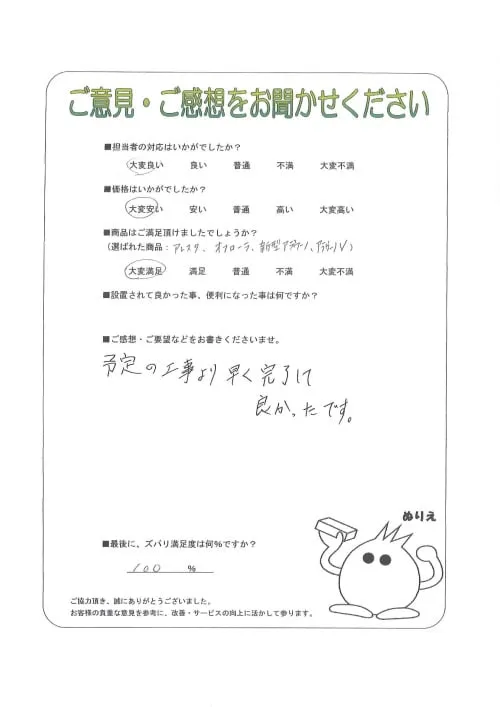 ご意見・ご感想をお聞かせください
■担当者の対応はいかがでしたか?
大変良い 良い 普通 不満 大変不満
■価格はいかがでしたか?
大変安い 安い 普通 高い 大変高い
■商品はご満足頂けましたでしょうか?
(選ばれた商品:アレスタ、オフローラ、新型アラウーノ、アラウーノV)
大変満足 満足 普通 不満 大変不満
■設置されて良かった事、便利になった事は何ですか?
■ご感想・ご要望などをお書きくださいませ。
予定の工事より早く完了して
良かったです。
ぬりえ
■最後に、ズバリ満足度は何%ですか?
100 %
ご協力頂き、誠にありがとうございました。
お客様の貴重な意見を参考に、改善・サービスの向上に活かして参ります。